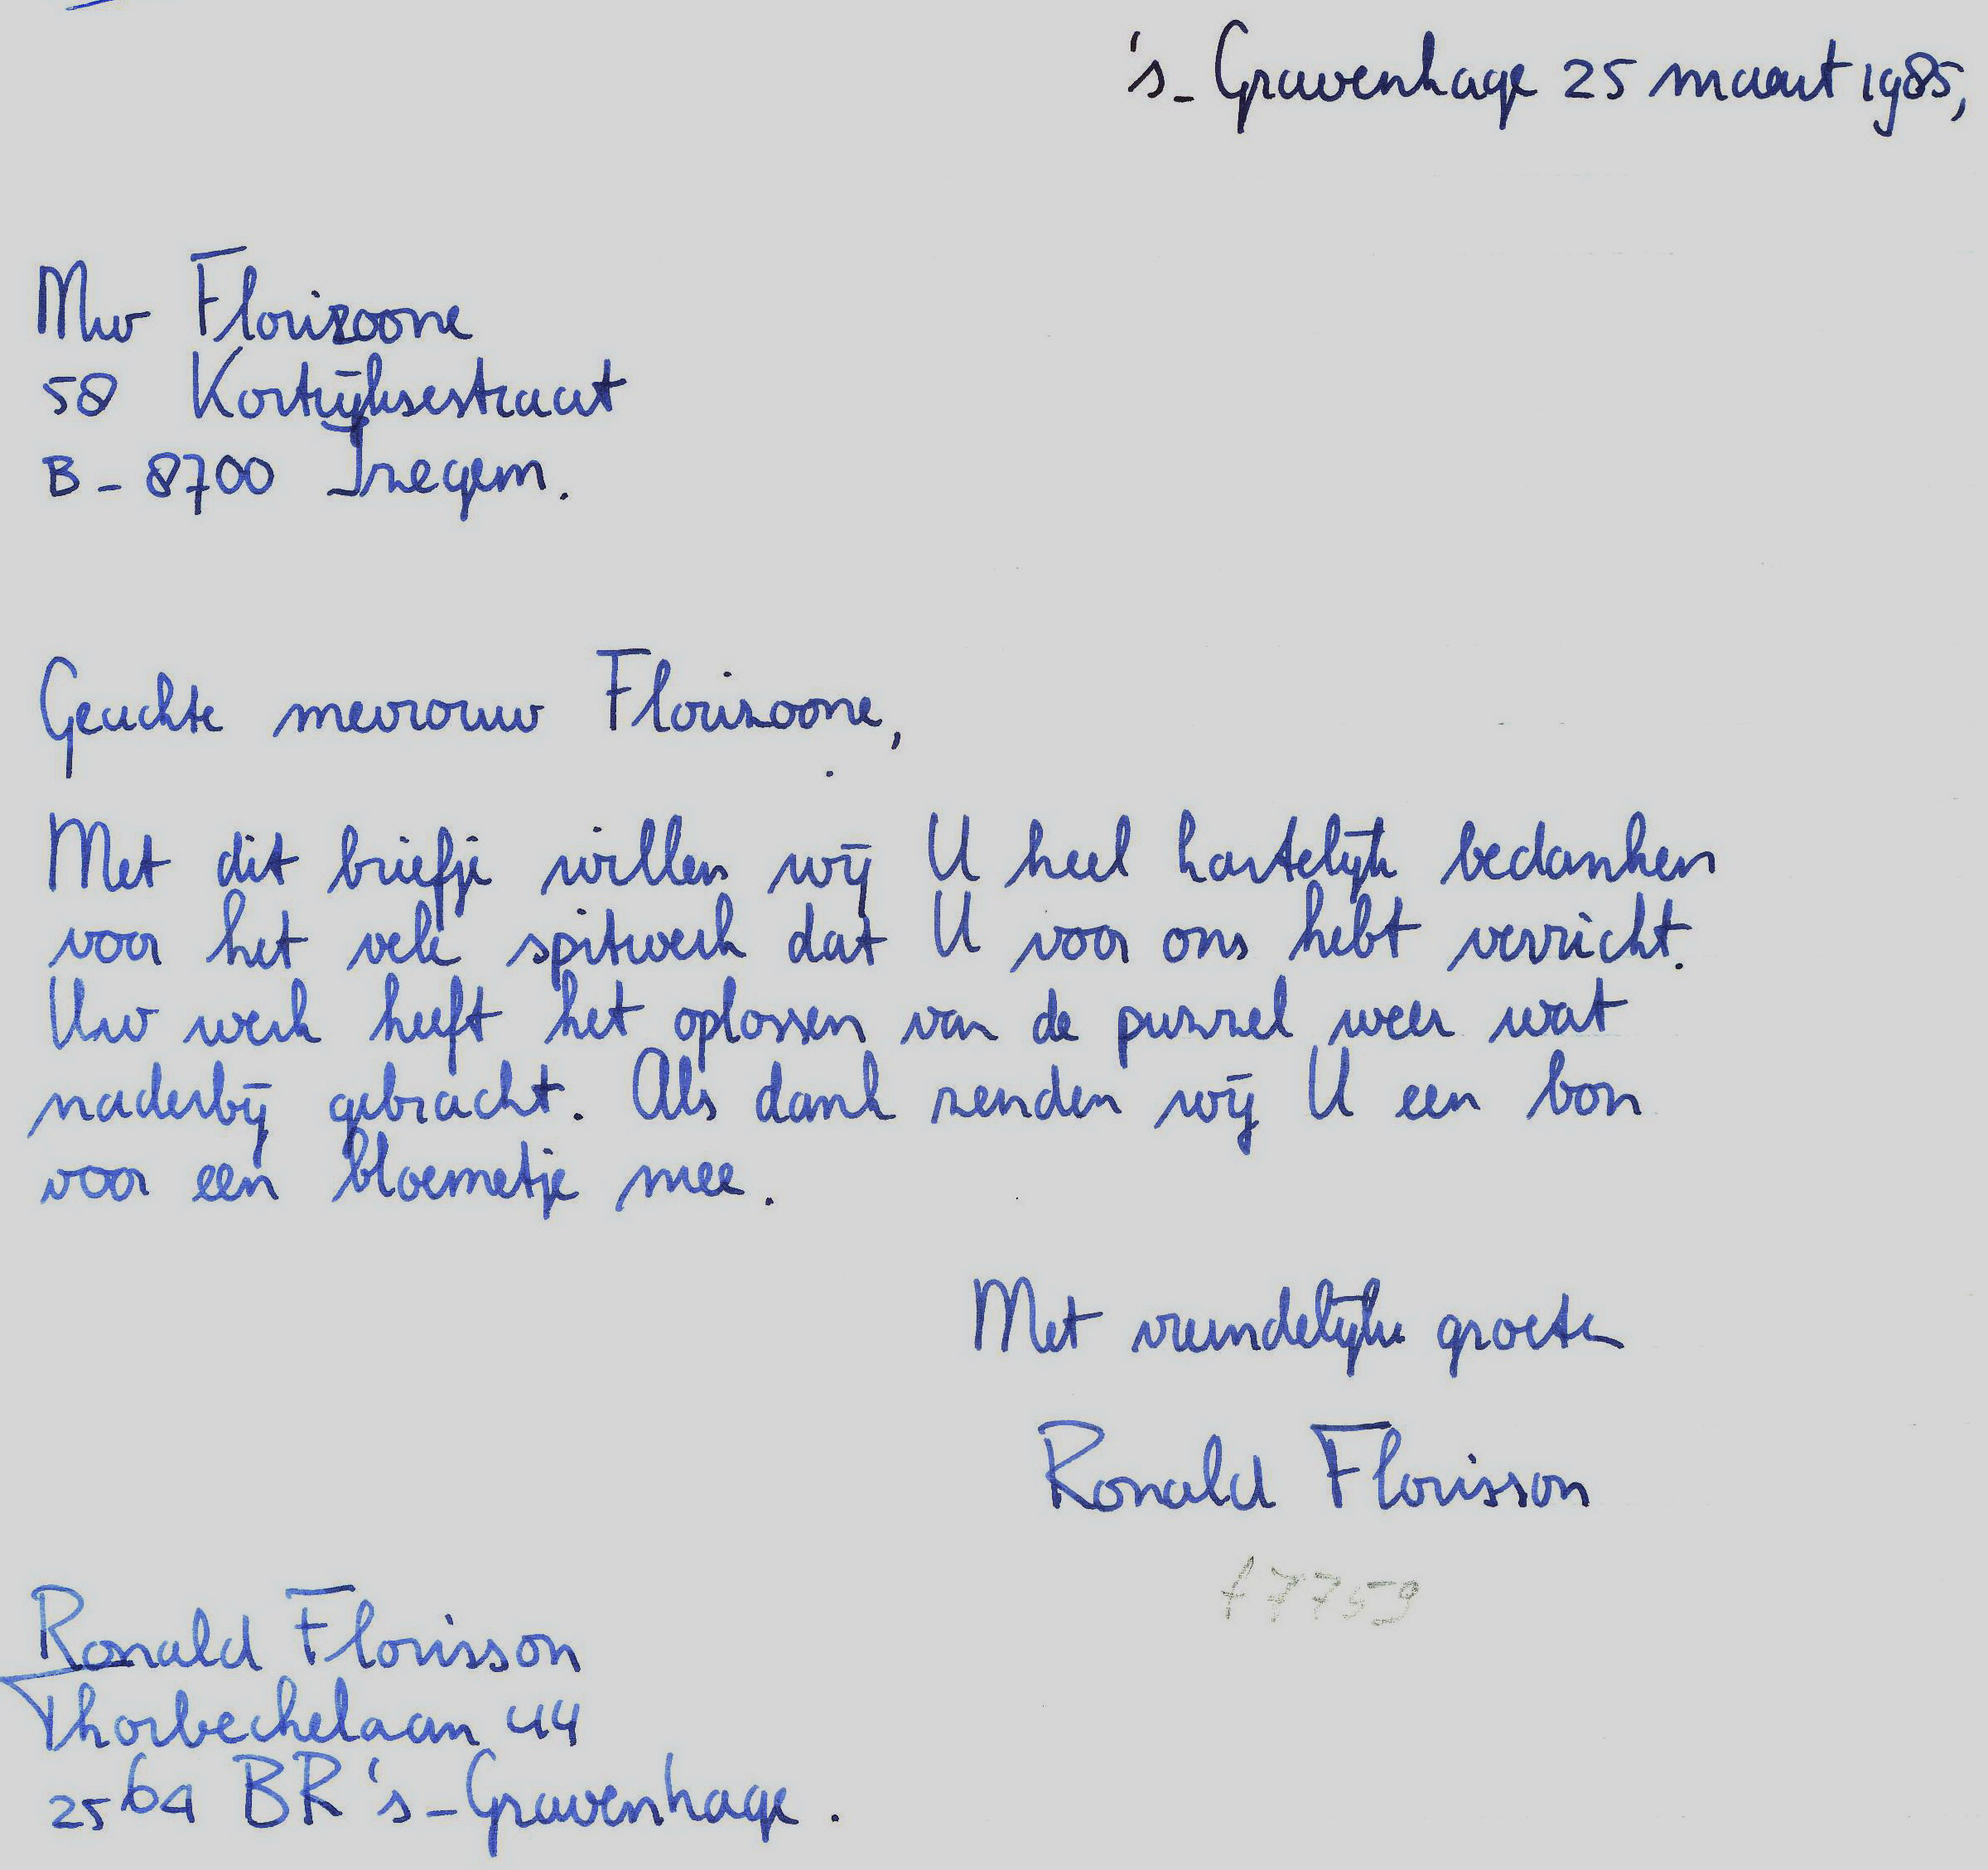 's-Gravenhage 25 maart 1985,
Mw Florizoone
58 Kortrijksestraat
B-8700 Izegem.
Geachte mevrouw Florizoone,
Met dit briefje willen wij U heel hartelijk bedanken
voor het vele spitwerk dat U voor ons hebt verricht.
Uw werk heeft het oplossen van de puzzel weer wat
naderbij gebracht. Als dank zenden wij U een bon
voor een bloemetje mee.
Met vriendelijke groeten
Ronald Florisson
f 7759
Ronald Florisson
Thorbeckelaan 44
2564 BR 's-Gravenhage.